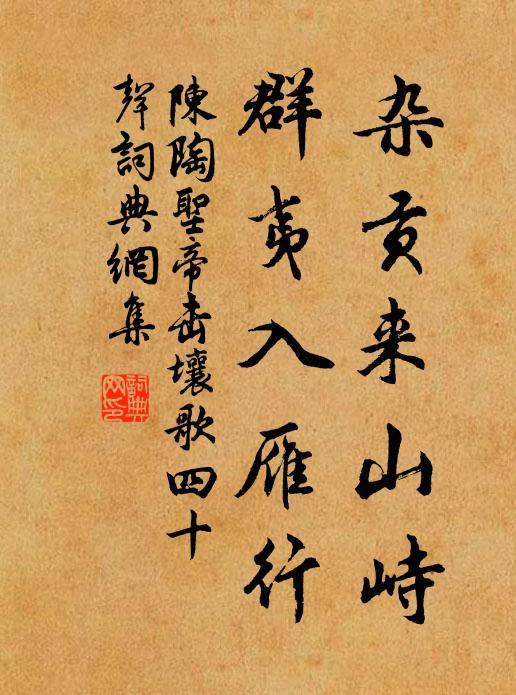 杂贡来山峙
群夷入雁行
陳陶聖帝击壤歌四十
聲詞典網集
詞典
网印